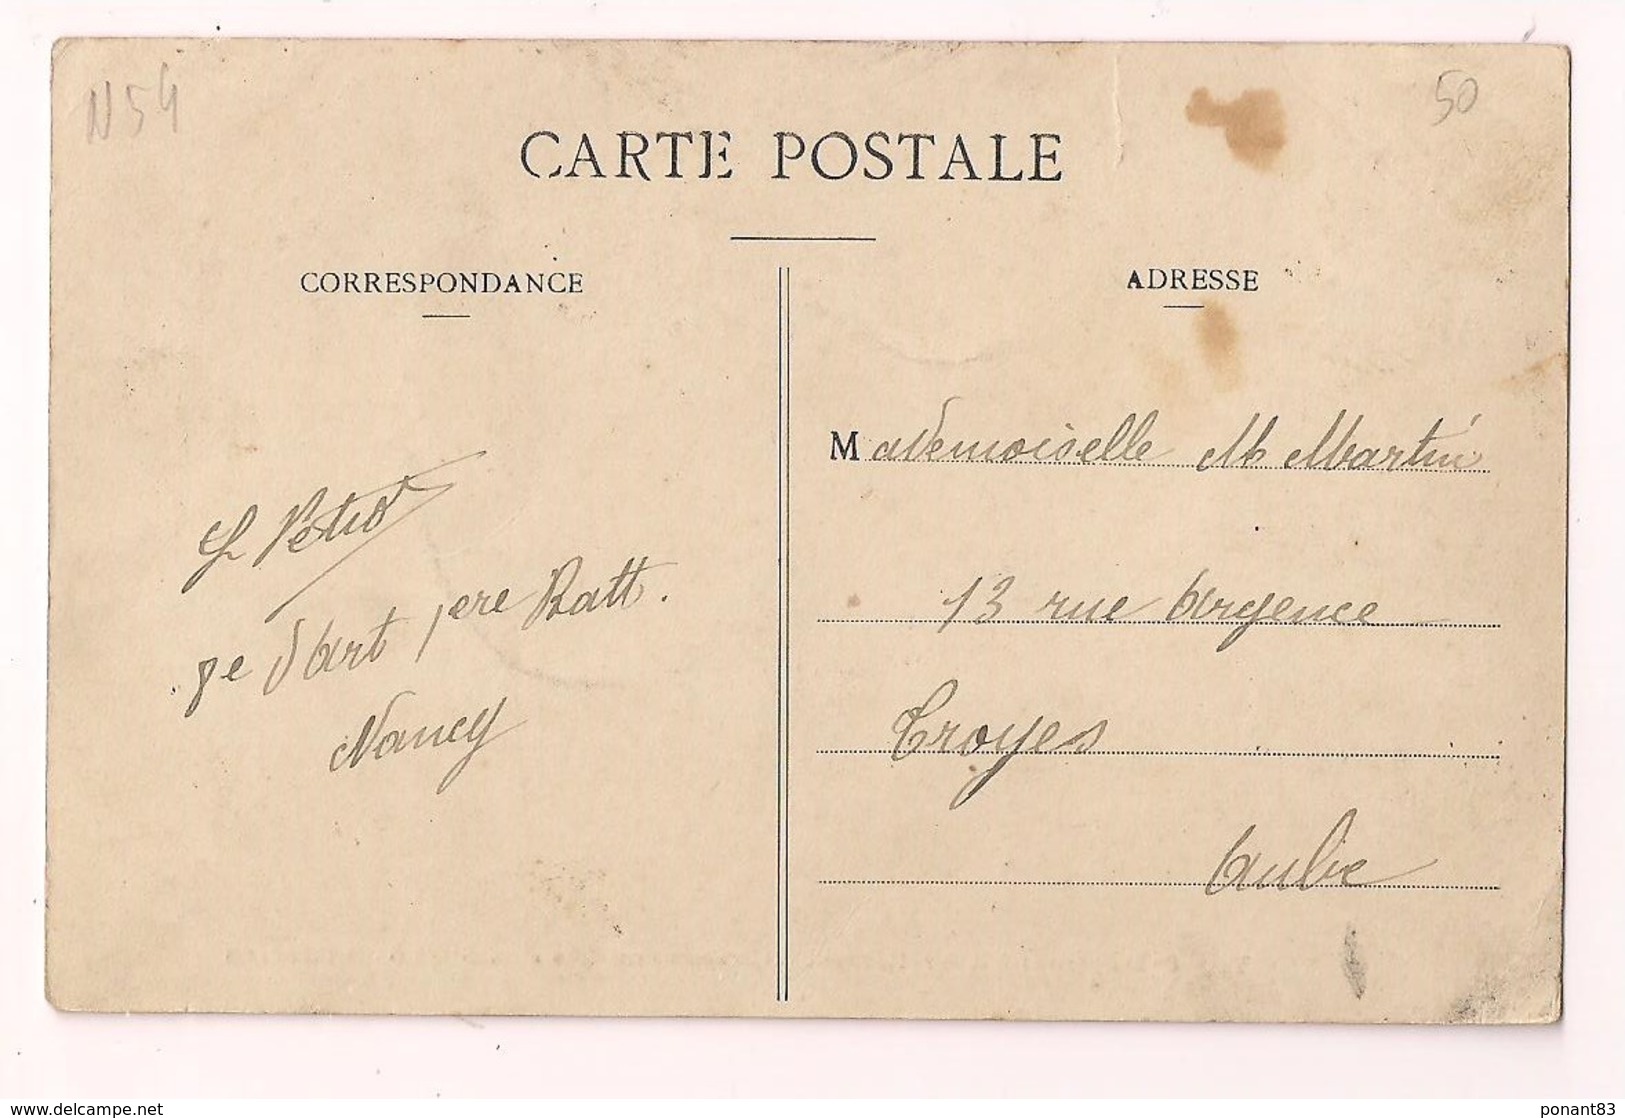 N54
50
CARTE POSTALE
CORRESPONDANCE
ADRESSE
L Petio
8e d'art 1ere Batt.
Nancy
Mademoiselle M Martin
13 rue Argence
Troyes
Aube
www.delcampe.net
ponant83